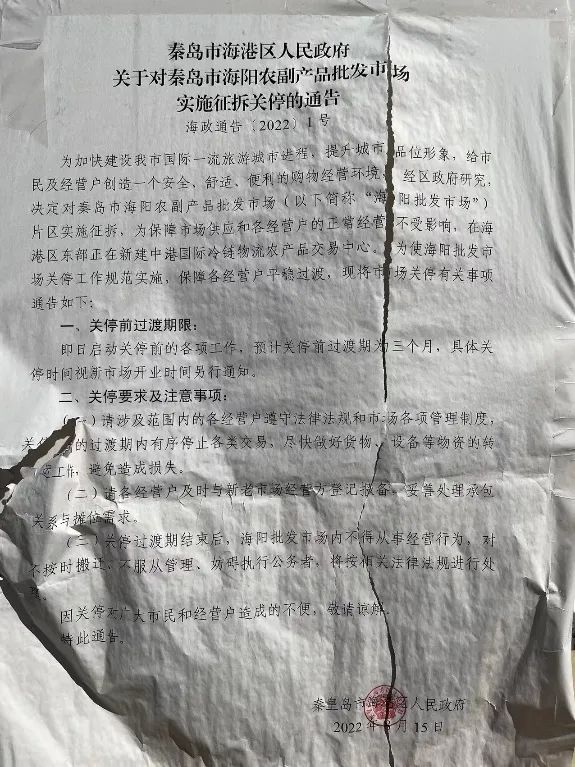 秦岛市海港区人民政府
关于对秦岛市海阳农副产品批发市场
实施征拆关停的通告
海政通告〔2022〕1号
为加快建设我市国际一流旅游城市进程，提升城市品位形象，给市
民及经营户创造一个安全、舒适、便利的购物经营环境 经区政府研究，
决定对秦岛市海阳农副产品批发市场（以下简称“海 批发市场”）
片区实施征拆，为保障市场供应和各经营户的正常经营不受影响，在海
港区东部正在新建中港国际冷链物流农产品交易中心。 为使海阳批发市
场关停工作规范实施，保障各经营户平稳过渡，现将市场关停有关事项
通告如下：
一、关停前过渡期限：
即日启动关停前的各项工作，预计关停前过渡期为三个月，具体关
停时间视新市场开业时间另行通知。
二、关停要求及注意事项：
（一）请涉及范围内的各经营户遵守法律法规和市场各项管理制度，
关 的过渡期内有序停止各类交易，尽快做好货物、设备等物资的转
工作，避免造成损失。
（二）请各经营户及时与新老市场经营方登记报备，妥善处理承包
关系与摊位需求。
（三）关停过渡期结束后，海阳批发市场内不得从事经营行为，对
不按时搬迁、不服从管理、妨碍执行公务者，将按相关法律法规进行处
因关停对广大市民和经营户造成的不便，敬请谅解。
特此通告。
秦皇岛市海港区人民政府
2022年 月15日